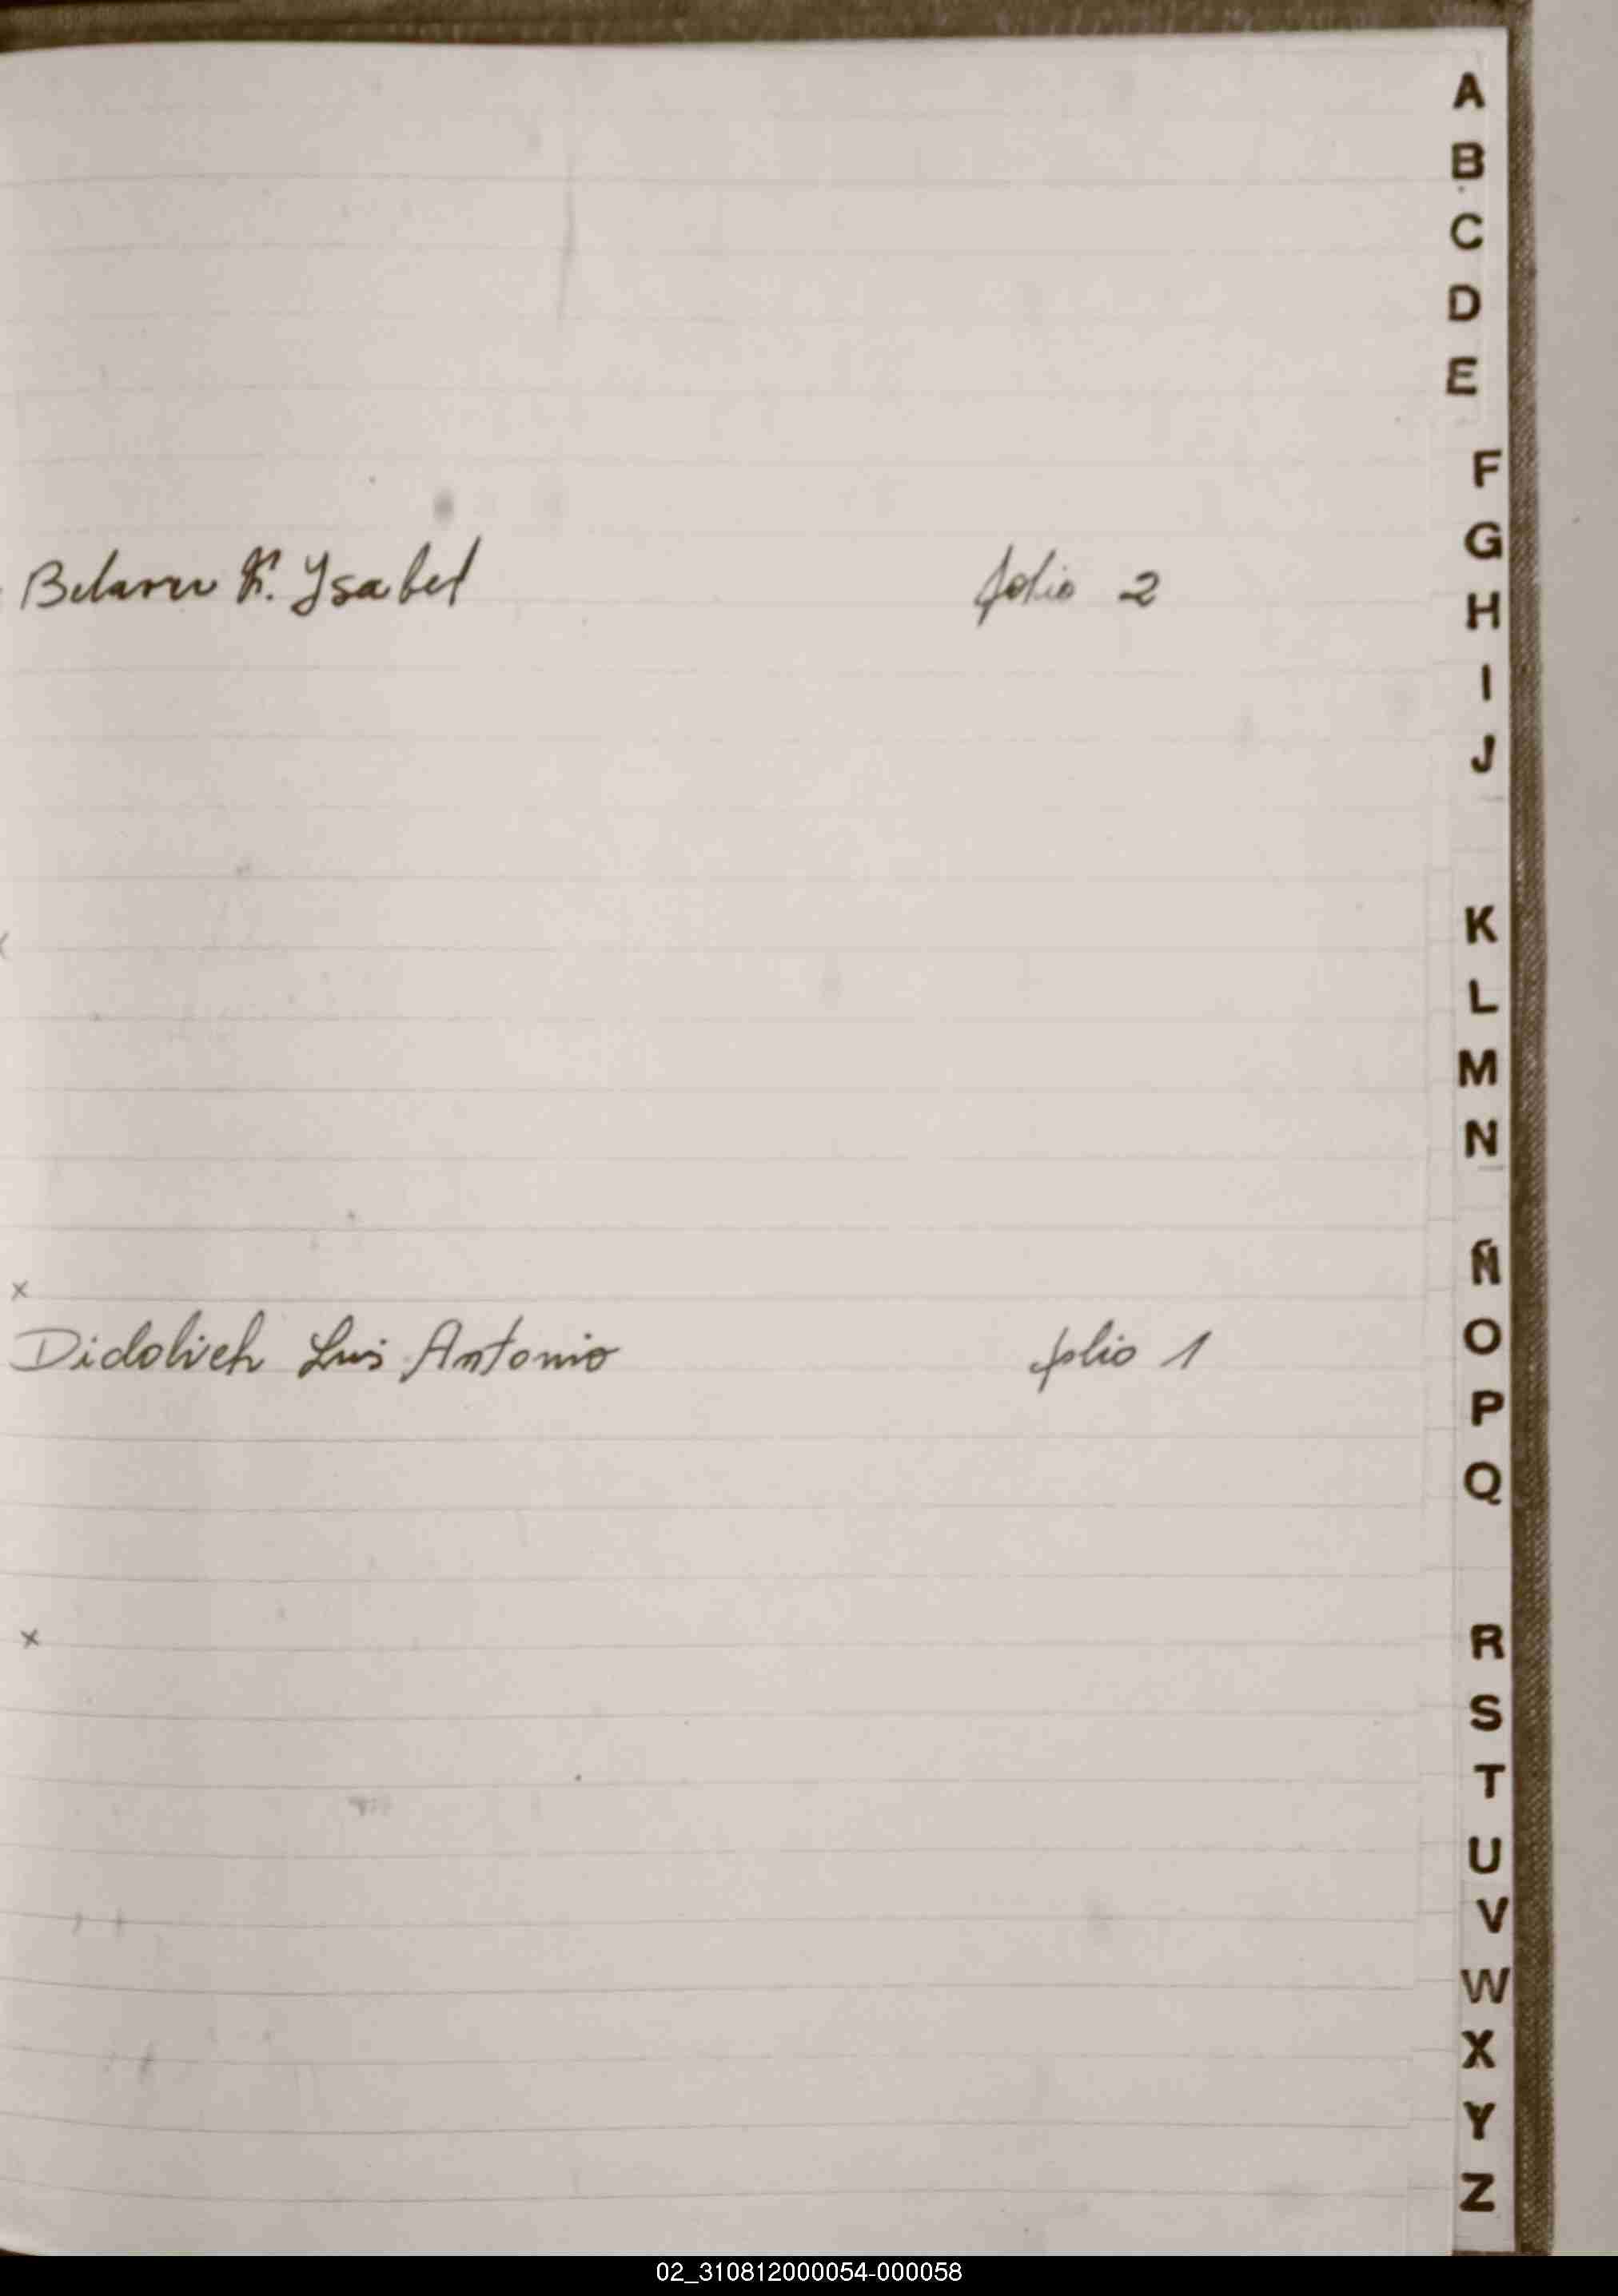 A
B
C
D
E
F
G
Ysabel folio 2
H
I
J
K
L
M
N
Ñ
O
Didolich Luis Antonio folio 1
P
Q
R
S
T
U
V
W
X
Y
Z
02_310812000054-000058